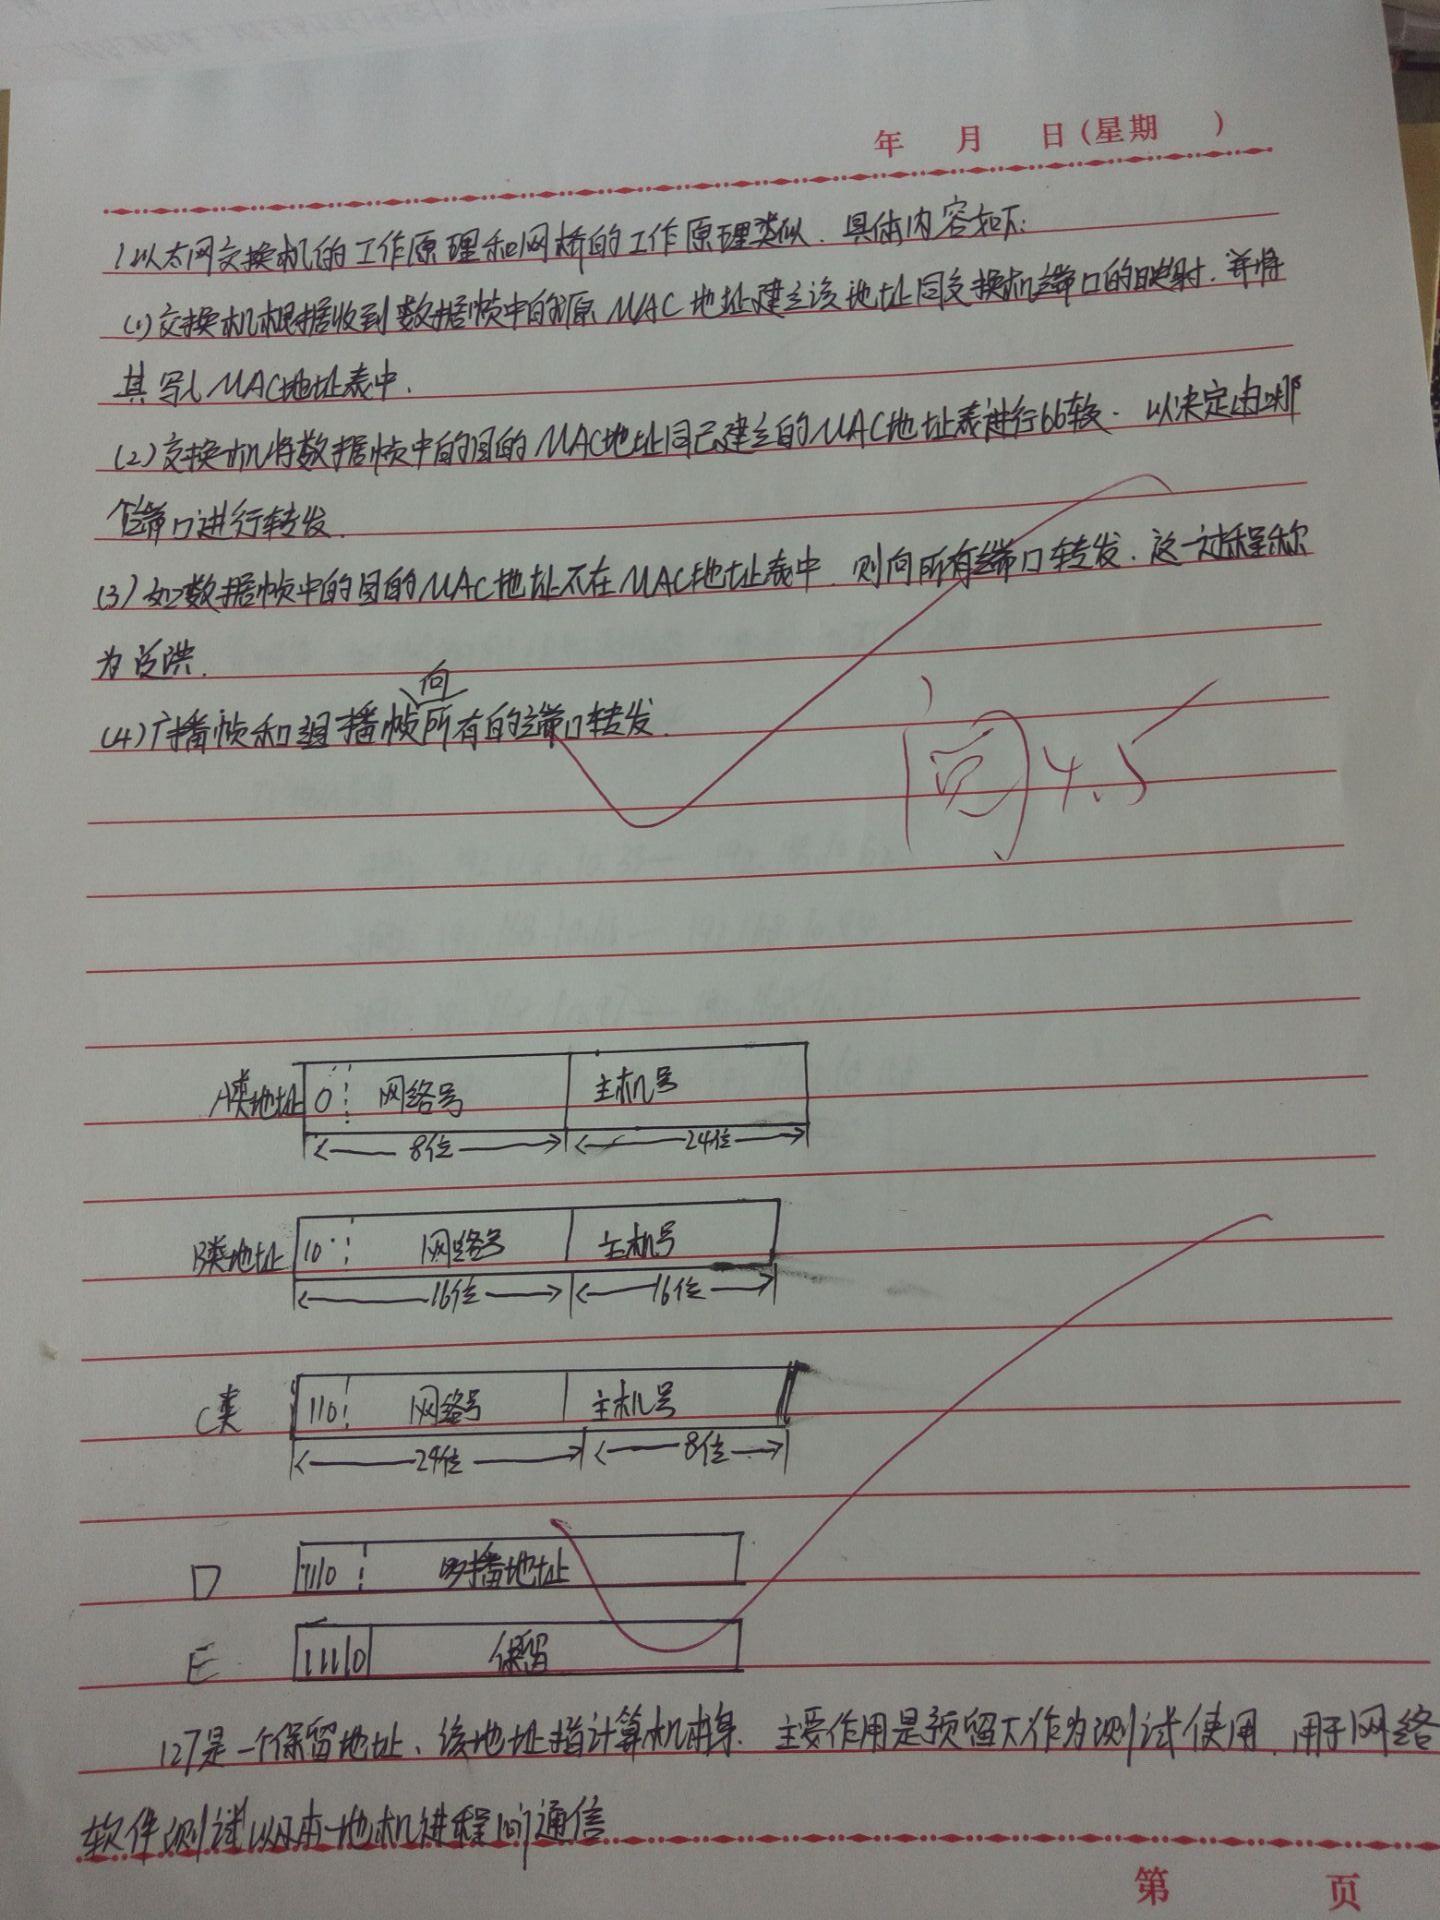 年 月 日(星期 )
1.以太网交换机的工作原理和网桥的工作原理类似.具体内容如下:
(1)交换机根据收到数据帧中的源MAC地址建立该地址同交换机端口的映射.并将
其写入MAC地址表中.
(2)交换机将数据帧中的目的MAC地址同已建立的MAC地址表进行比较.以决定由哪
个端口进行转发.
(3)如数据帧中的目的MAC地址不在MAC地址表中.则向所有端口转发.这一过程称
为泛洪.
(4)广播帧和组播帧向所有的端口转发.
4.5
A类地址 0 网络号 主机号
8位 24位
B类地址 10 网络号 主机号
16位 16位
C类 110 网络号 主机号
24位 8位
D 1110 多播地址
E 11110 保留
127是一个保留地址、该地址指计算机本身.主要作用是预留下作为测试使用.用于网络
软件测试以及本地机进程间通信
第 页